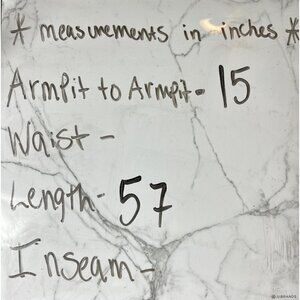 * measurements in inches *
Armpit to Armpit - 15
Waist -
Length - 57
Inseam -